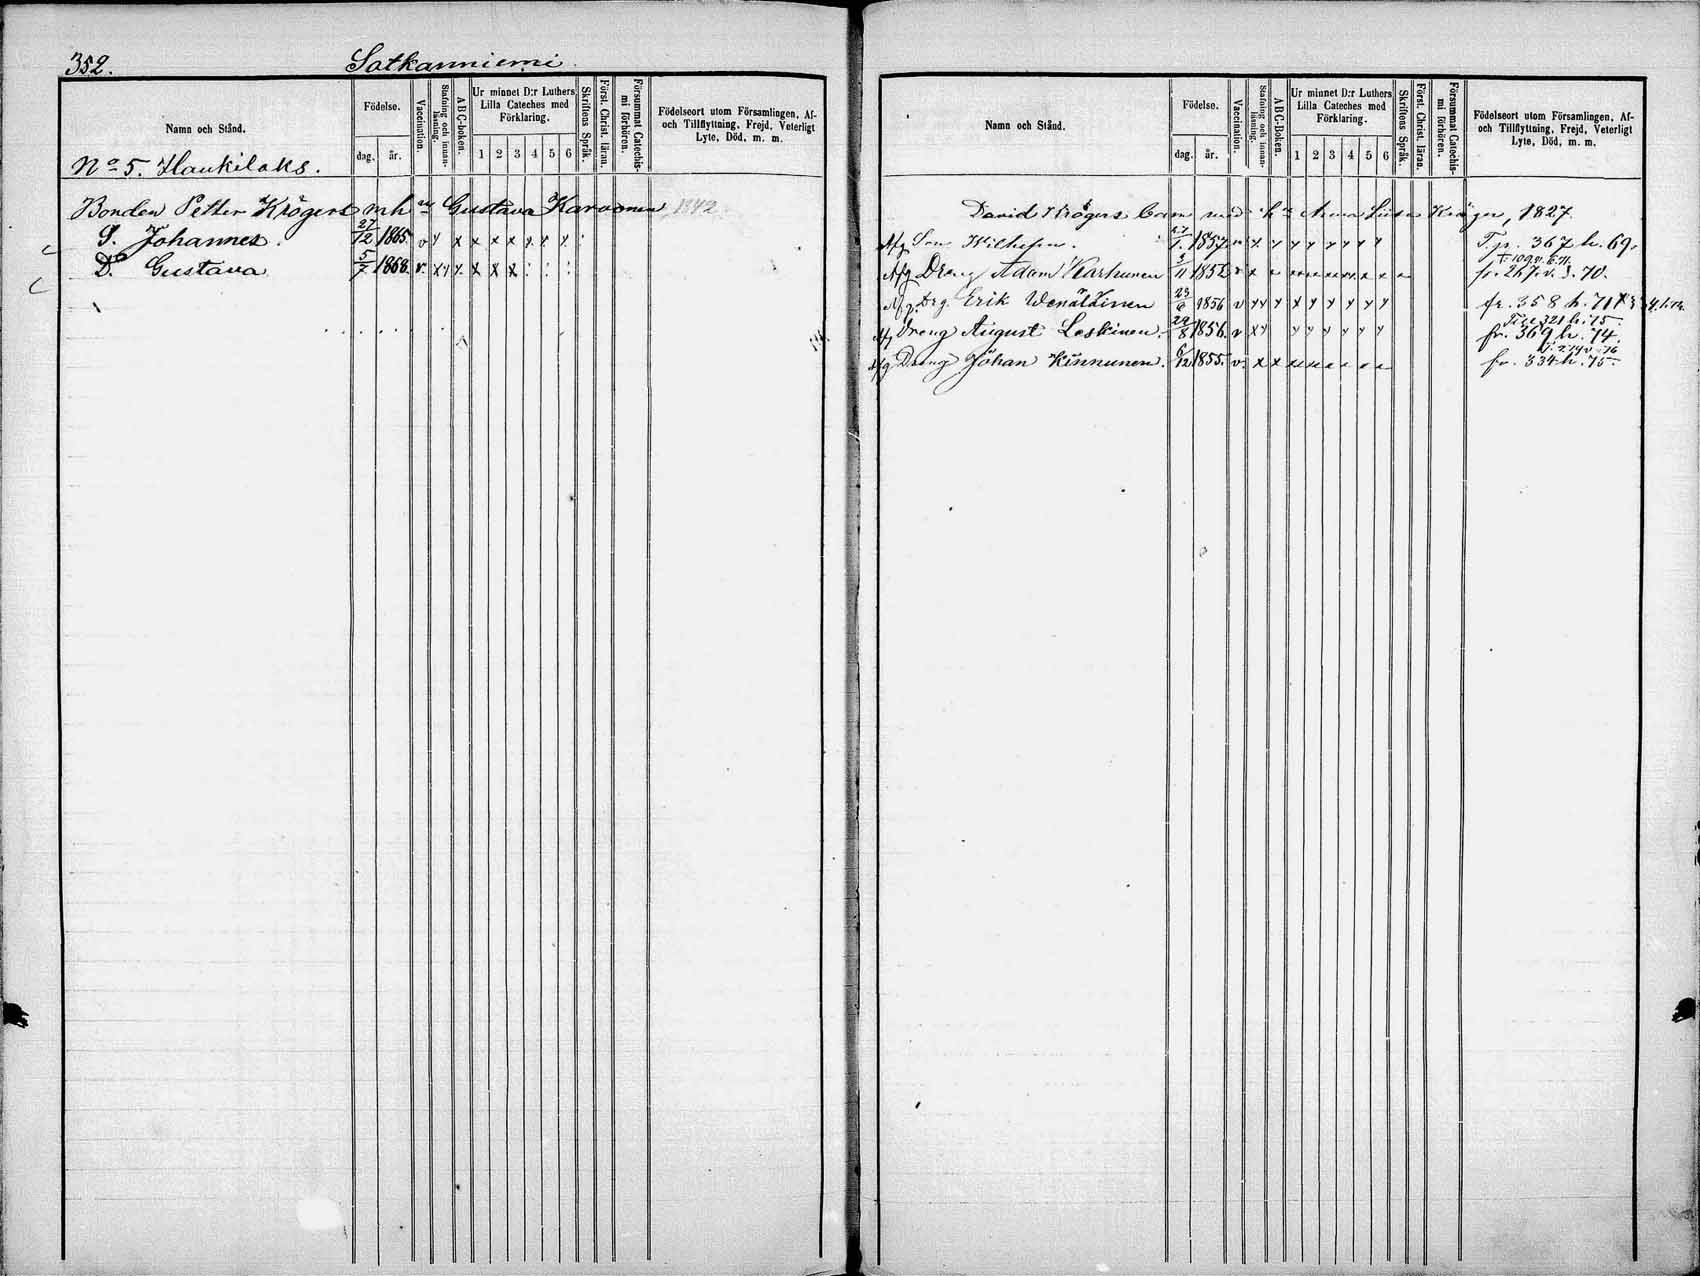 352. Satkanniemi.
Namn och Stånd.
Födelse.
dag. år.
Vaccination.
Stafning och innan-läsning.
ABC-boken.
Ur minnet D:r Luthers
Lilla Cateches med
Förklaring.
1 2 3 4 5 6
Skriftens Språk.
Först. Christ. läran.
Försummat Catechis-
mi förhören.
Födelseort utom Församlingen, Af-
och Tillflyttning, Frejd, Veterligt
Lyte, Död, m. m.
No 5. Haukilaks.
Bonden Petter Krögers m h us Gustava Karvonen 1842
S. Johannes. 27/12 1865. v y x x x x y y y
D. Gustava 5/7 1868. v. x y x x x x
Namn och Stånd.
Födelse.
dag. år.
Vaccination.
Stafning och innan-läsning.
ABC-Boken.
Ur minnet D:r Luthers
Lilla Cateches med
Förklaring.
1 2 3 4 5 6
Skriftens Språk.
Först. Christ. läran.
Försummat Catechis-
mi förhören.
Födelseort utom Församlingen, Af-
och Tillflyttning, Frejd, Veterligt
Lyte, Död, m. m.
David Krögers barn med h Anna Luisa Kröger, 1827.
Afg Son Wilhelm. 1857 T. p. 367 h. 69.
Afg Dreng Adam Karhunen 3/11 1852 v fr 267 v. s. 70.
Afg. Drg. Erik Wenäläinen 23/6 1856 v fr. 358 h. 71
Afg Dreng August Leskinen. 29/8 1856. v fr. 369 h. 74.
T. p. 321 h. 75
Afg Dreng Johan Kinnunen. 6/12 1855. v. fr. 334 h. 75.